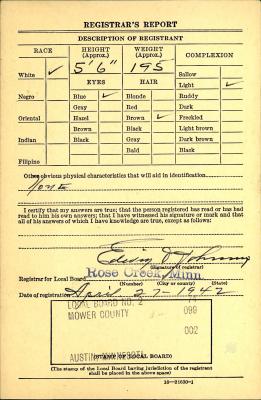 REGISTRAR'S REPORT
DESCRIPTION OF REGISTRANT
RACE HEIGHT (Approx.) WEIGHT (Approx.) COMPLEXION
White ✓ 5' 6" 195 Sallow
EYES HAIR Light ✓
Negro Blue ✓ Blonde Ruddy
Gray Red Dark
Oriental Hazel Brown ✓ Freckled
Brown Black Light brown
Indian Black Gray Dark brown
Bald Black
Filipino
Other obvious physical characteristics that will aid in identification
None
I certify that my answers are true; that the person registered has read or has had
read to him his own answers; that I have witnessed his signature or mark and that
all of his answers of which I have knowledge are true, except as follows:
(Signature of registrar)
Registrar for Local Board Rose Creek, Minn.
(Number) (City or county) (State)
Date of registration April 27 - 1942
LOCAL BOARD NO. 2
MOWER COUNTY 099
002
AUSTIN, MINNESOTA
(STAMP OF LOCAL BOARD)
(The stamp of the Local Board having jurisdiction of the registrant
shall be placed in the above space.)
16—21630-1